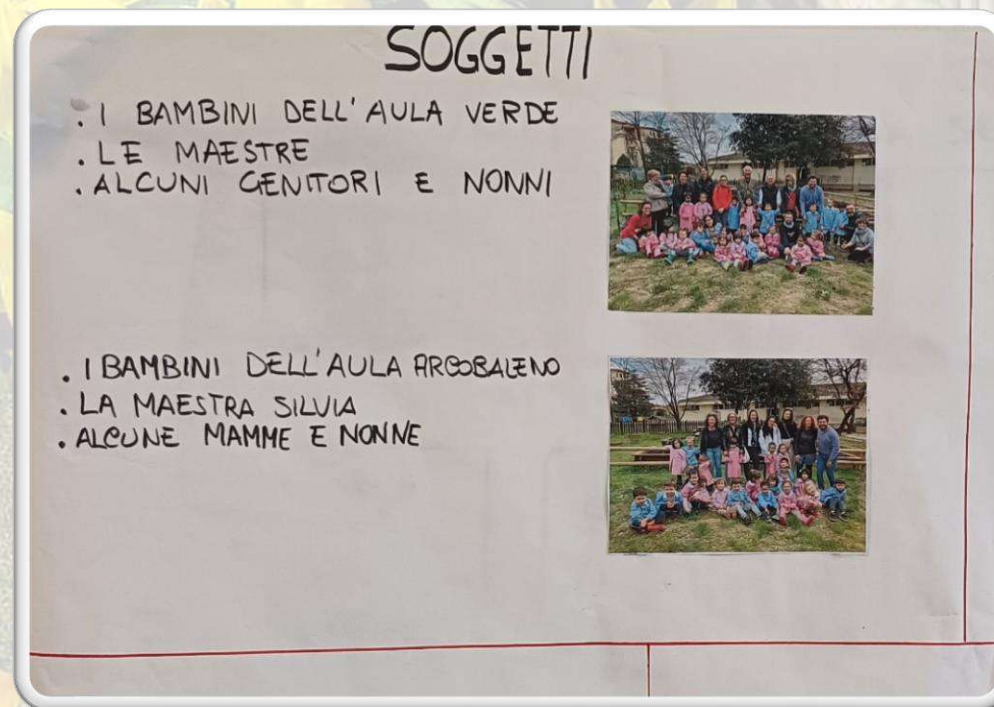 SOGGETTI
. I BAMBINI DELL'AULA VERDE
. LE MAESTRE
. ALCUNI GENITORI E NONNI
. I BAMBINI DELL'AULA ARCOBALENO
. LA MAESTRA SILVIA
. ALCUNE MAMME E NONNE